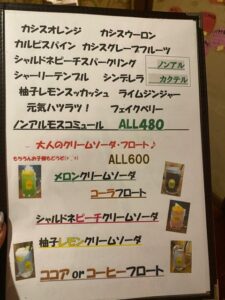 カシスオレンジ カシスウーロン
カルピスパイン カシスグレープフルーツ
シャルドネピーチスパークリング ノンアル
シャーリーテンプル シンデレラ カクテル
柚子レモンスッカッシュ ライムジンジャー
元気ハツラツ! フェイクベリー
ノンアルモスコミュール ALL480
大人のクリームソーダ・フロート♪
もちろんお子様もどうぞ ALL600
メロンクリームソーダ
コーラフロート
シャルドネピーチクリームソーダ
柚子レモンクリームソーダ
ココア orコーヒーフロート